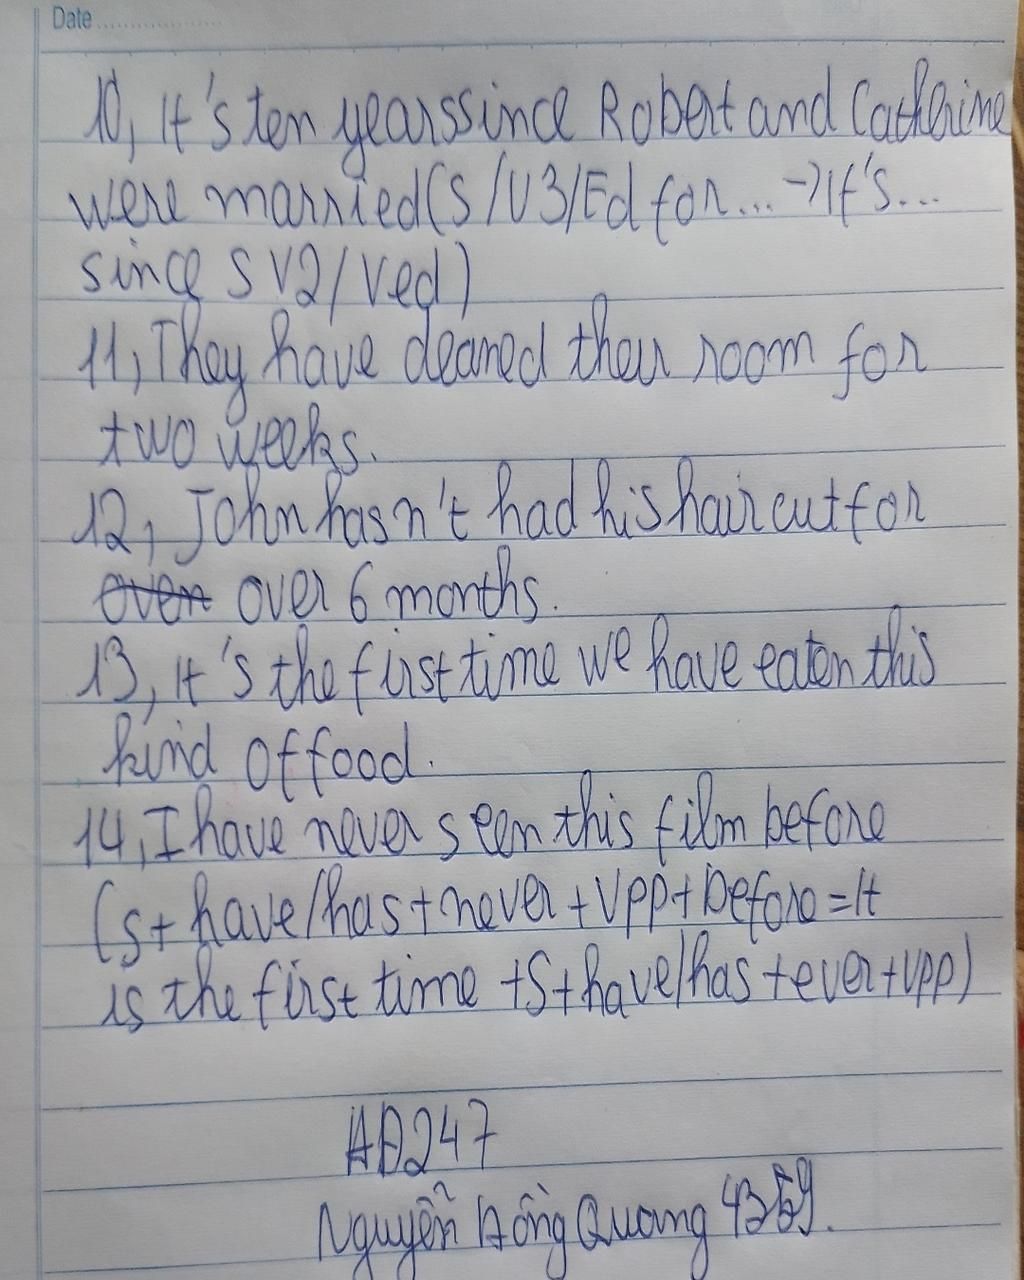 Date
10, It's ten years since Robert and Catherine
were married (S/V3/Ed for... → It's...
since S V2/Ved)
11, They have cleaned their room for
two weeks.
12, John hasn't had his hair cut for
over 6 months.
13, It's the first time we have eaten this
kind of food.
14, I have never seen this film before
(S+ have/has + never + Vpp + before = It
is the first time + S + have/has + ever + Vpp)
247
Nguyễn Hồng Quang